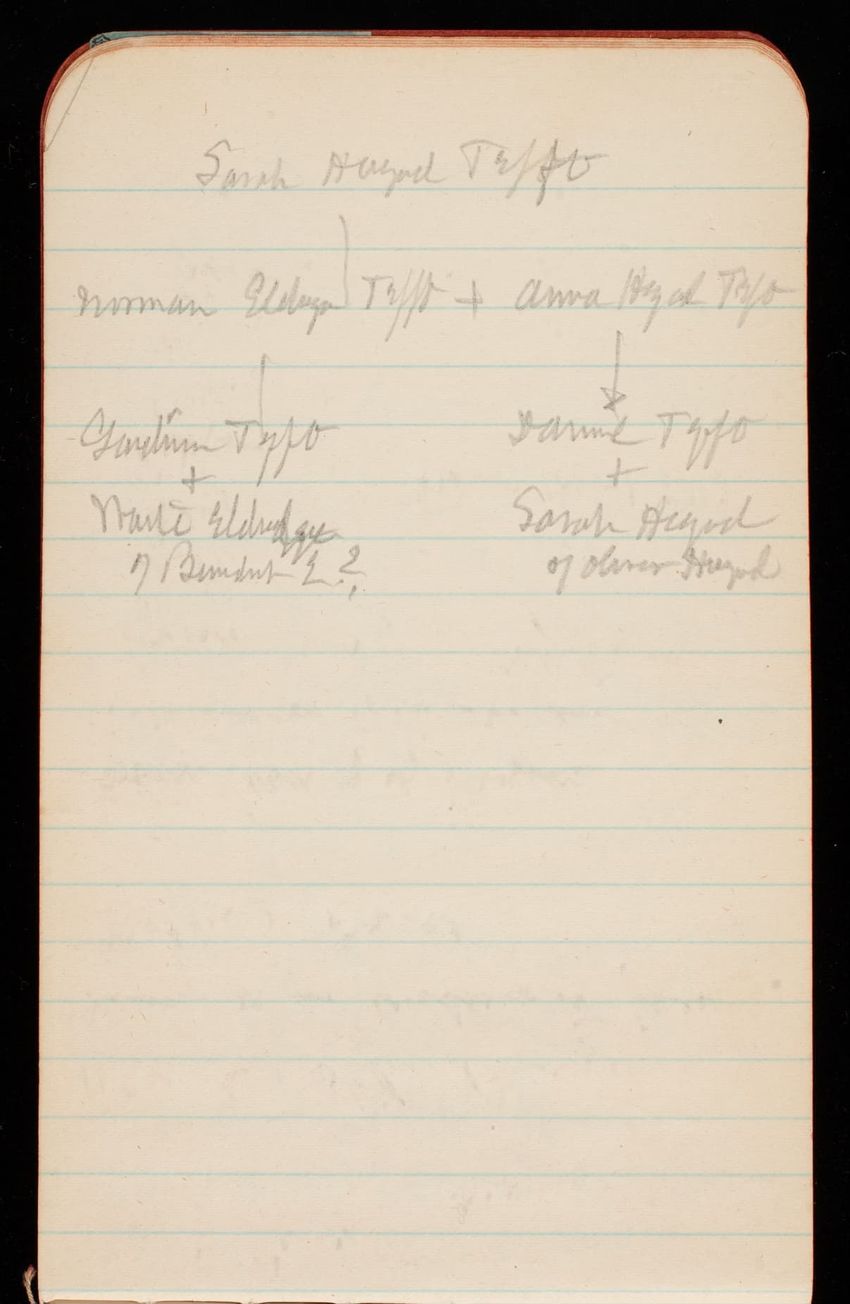 Sarah Hazard Tefft
Norman Eldredge Tefft + Anna Hazard Tefft
Tefft Daniel Tefft
+ +
Eldredge Sarah Hazard
of Benedict E? of Oliver Hazard